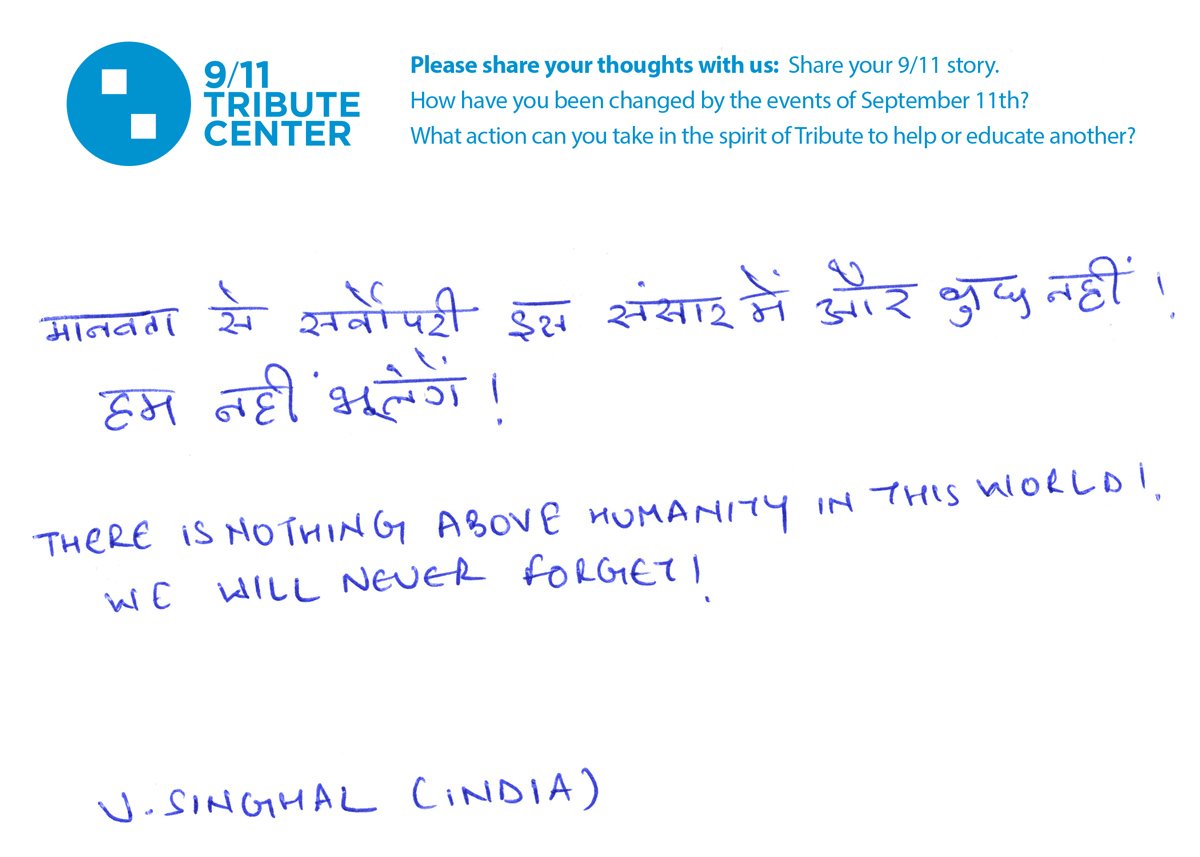 9/11
TRIBUTE
CENTER
Please share your thoughts with us: Share your 9/11 story.
How have you been changed by the events of September 11th?
What action can you take in the spirit of Tribute to help or educate another?
मानवता से सर्वोपरी इस संसार में और कुछ नहीं !
हम नहीं भूलेगें !
THERE IS NOTHING ABOVE HUMANITY IN THIS WORLD!
WE WILL NEVER FORGET!
V. SINGHAL (INDIA)